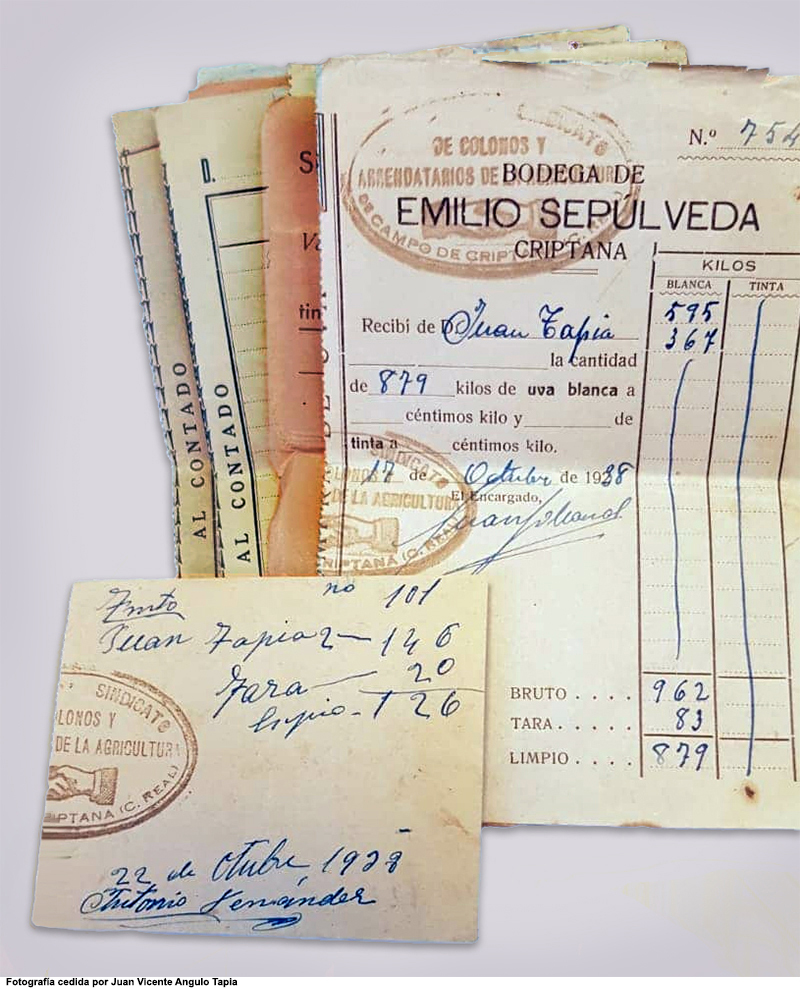 AL CONTADO
D.
AL CONTADO
S
tin
SINDICATO
DE COLONOS Y
ARRENDATARIOS DE LA AGRICULTURA
DE CAMPO DE CRIPTANA (C. REAL)
N.º 754
BODEGA DE
EMILIO SEPÚLVEDA
CRIPTANA
KILOS
BLANCA TINTA
595
367
Recibí de D. Juan Tapia
la cantidad
de 879 kilos de uva blanca a
céntimos kilo y de
tinta a céntimos kilo.
17 de Octubre de 1938
El Encargado,
SINDICATO
COLONOS Y
DE LA AGRICULTURA
CRIPTANA (C. REAL)
BRUTO . . . . 962
TARA . . . . . 83
LIMPIO . . . . 879
Tinto no 101
Juan Tapia 2 — 146
Tara — 20
limpio - 126
SINDICATO
OLONOS Y
DE LA AGRICULTURA
IPTANA (C. REAL)
22 de Otubre, 1938
Antonio Fernánder
Fotografía cedida por Juan Vicente Angulo Tapia